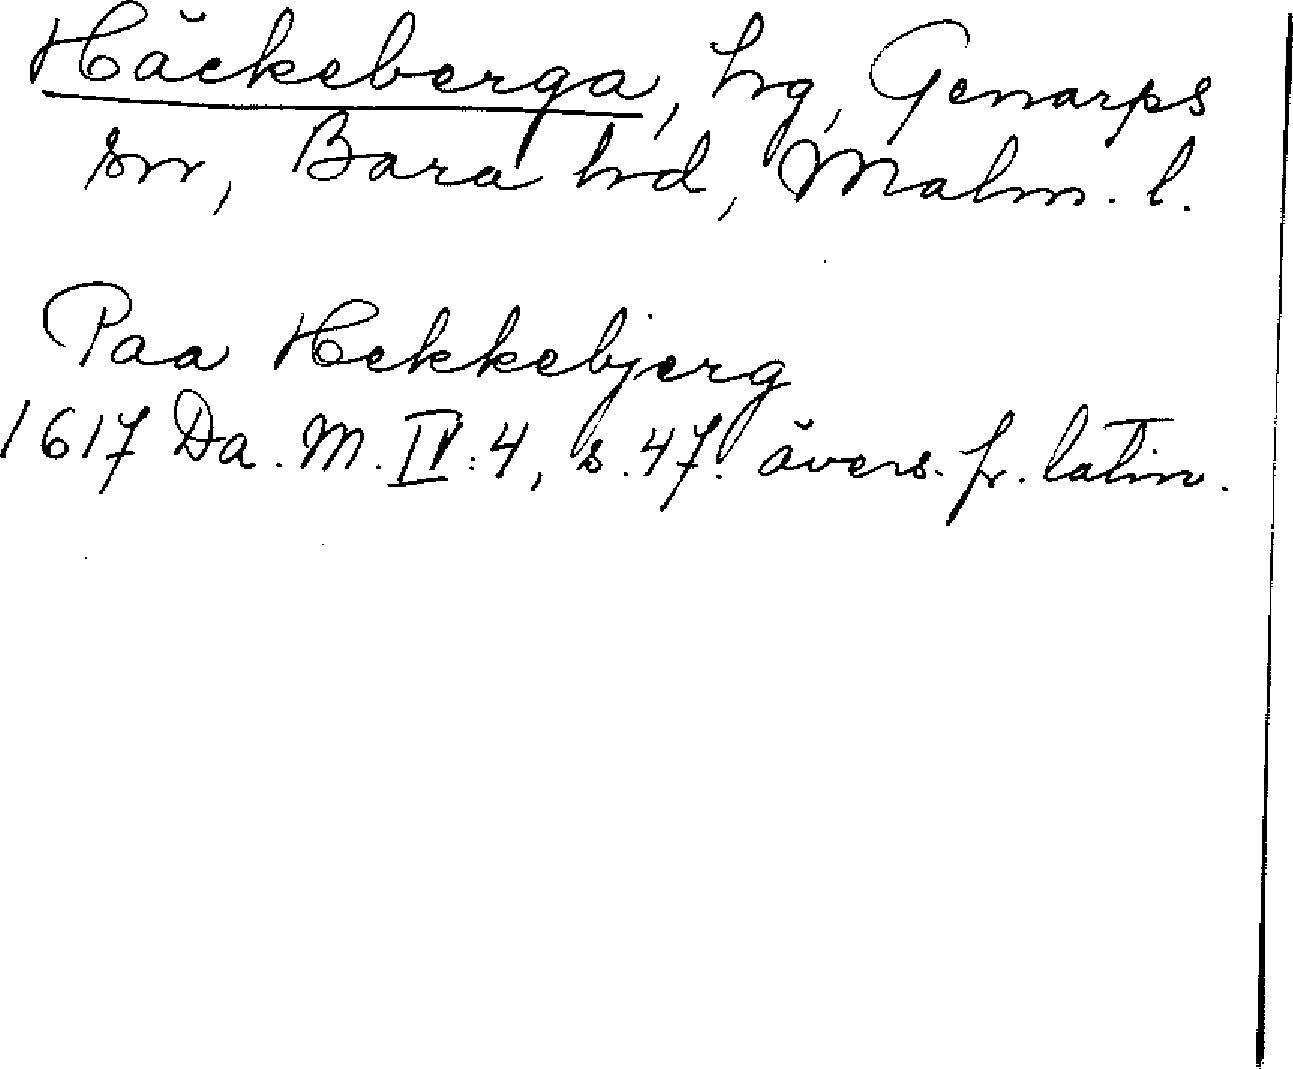 Häckeberga, hg, Genarps
sn, Bara hd, Malm. l.
Paa Hekkebjerg
1617 Da. M. IV:4, s. 47. övers. fr. latin.